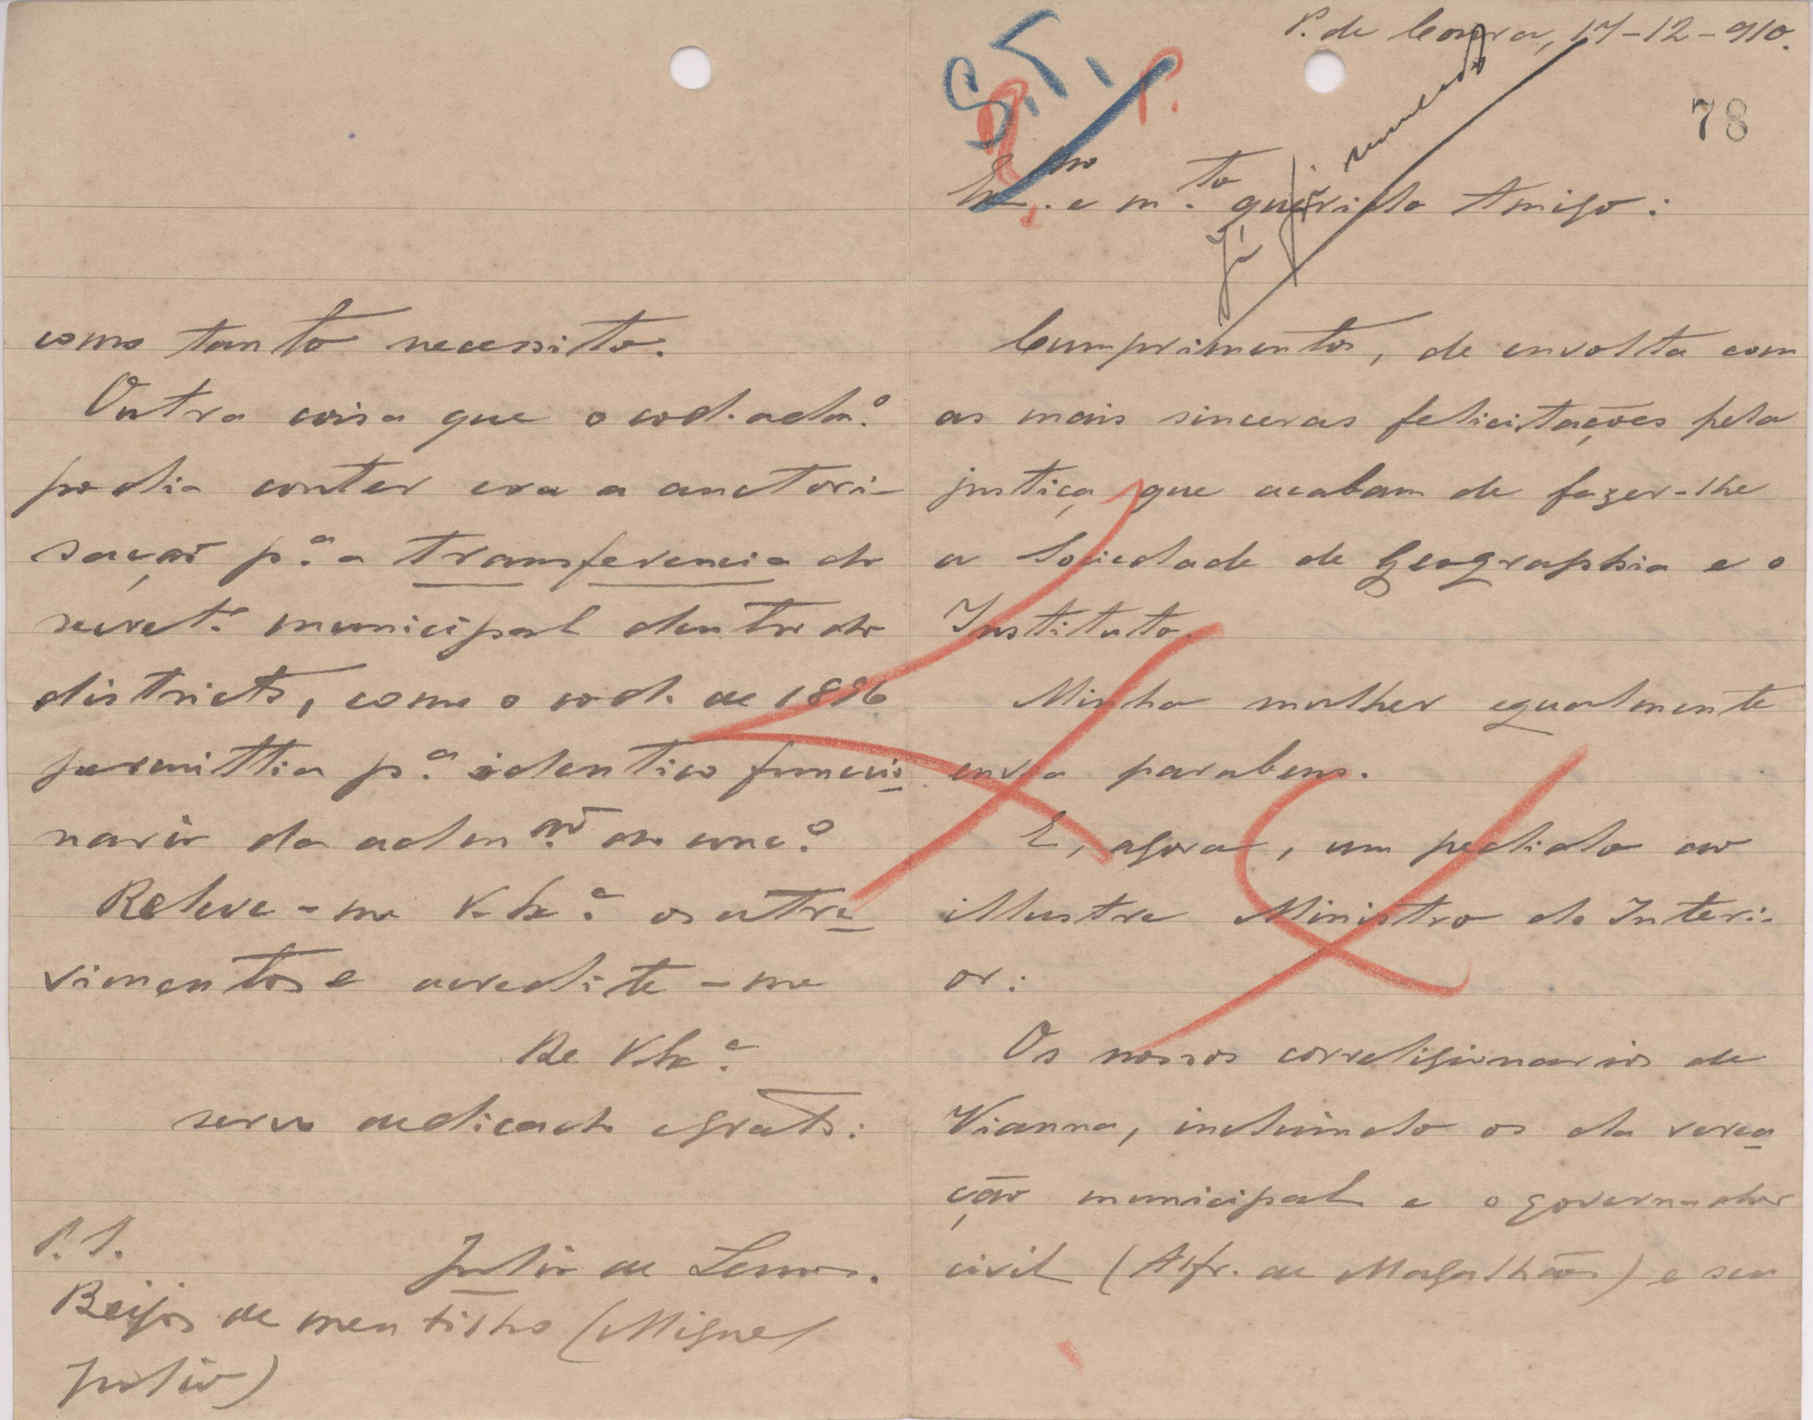 P. de Coura, 17-12-910.
78
S. T.
R. P.
Já foi
Ex.mo e m.to querido Amigo:
Cumprimentos, de envolta com
as mais sinceras felicitações pela
justiça que acabam de fazer-lhe
a Sociedade de Geographia e o
Instituto.
Minha mulher egualmente
envia parabens.
E, agora, um pedido ao
illustre Ministro do Interi-
or:
Os nossos correligionarios de
Vianna, incluindo os da verea
ção municipal e o governador
civil (Alfr. de Magalhães) e seu
como tanto necessito.
Outra coisa que o cod. adm.o
podia conter era a auctori-
sação p.a a transferencia do
secret.o municipal dentro do
districto, como o cod. de 1886
permittia p.a identico funccio
nario da adm.ão do conc.o
Releve-me V. Ex.a os atre
vimentos e acredite-me
De V. Ex.a
servo dedicado e grato:
Julio de Lemos.
P. S.
Beijos de meu filho (Miguel
Julio)